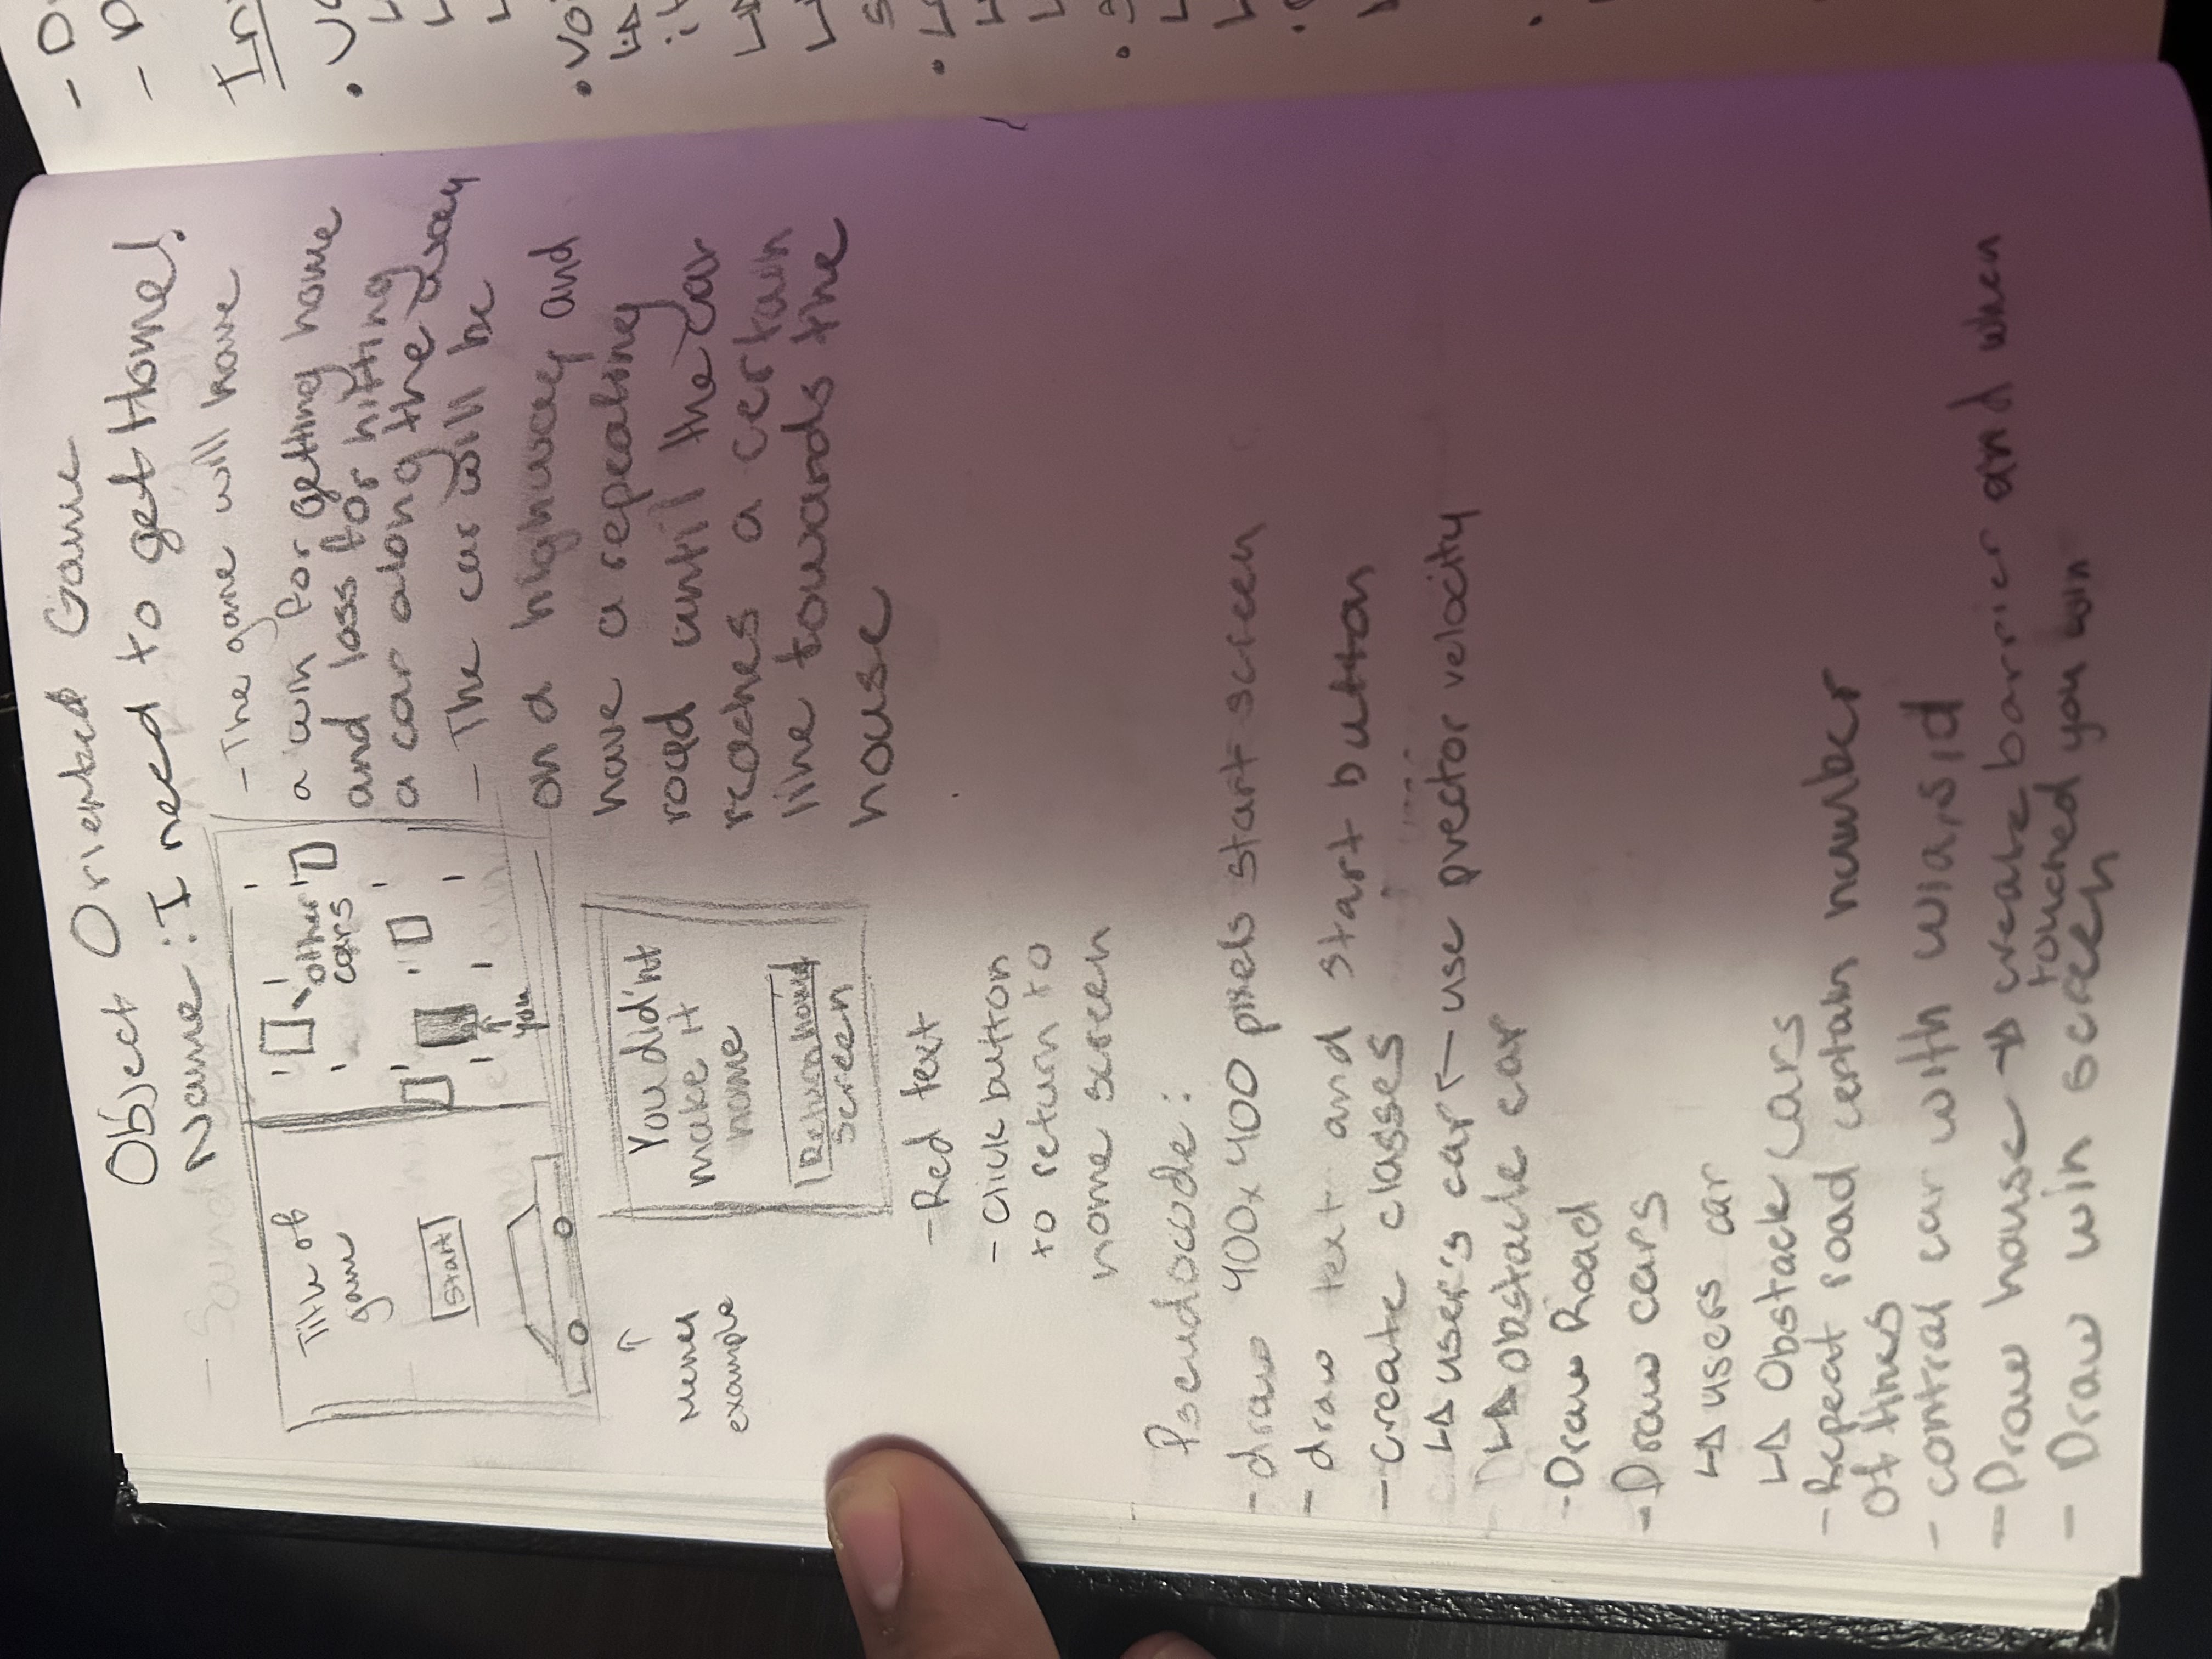 Object Oriented Game
Name: I need to get Home!
Title of
game
Start
other
cars
you
Menu
example
You did'nt
make it
home
Return home
screen
- Red text
- Click button
to return to
home screen
- The game will have
a win for getting home
and loss for hitting
a car along the way
- The car will be
on a highway and
have a repeating
road until the car
reaches a certain
line towards the
house
Pseudocode:
- draw 400x400 pixels start screen
- draw text and start button
- create classes
↳ user's car ← use pvector velocity
↳ obstacle car
- Draw Road
- Draw cars
↳ users car
↳ Obstacle cars
- Repeat road certain number
of times
- control car with w,a,s,d
- Draw house → create barrier and when
touched you win
- Draw win screen